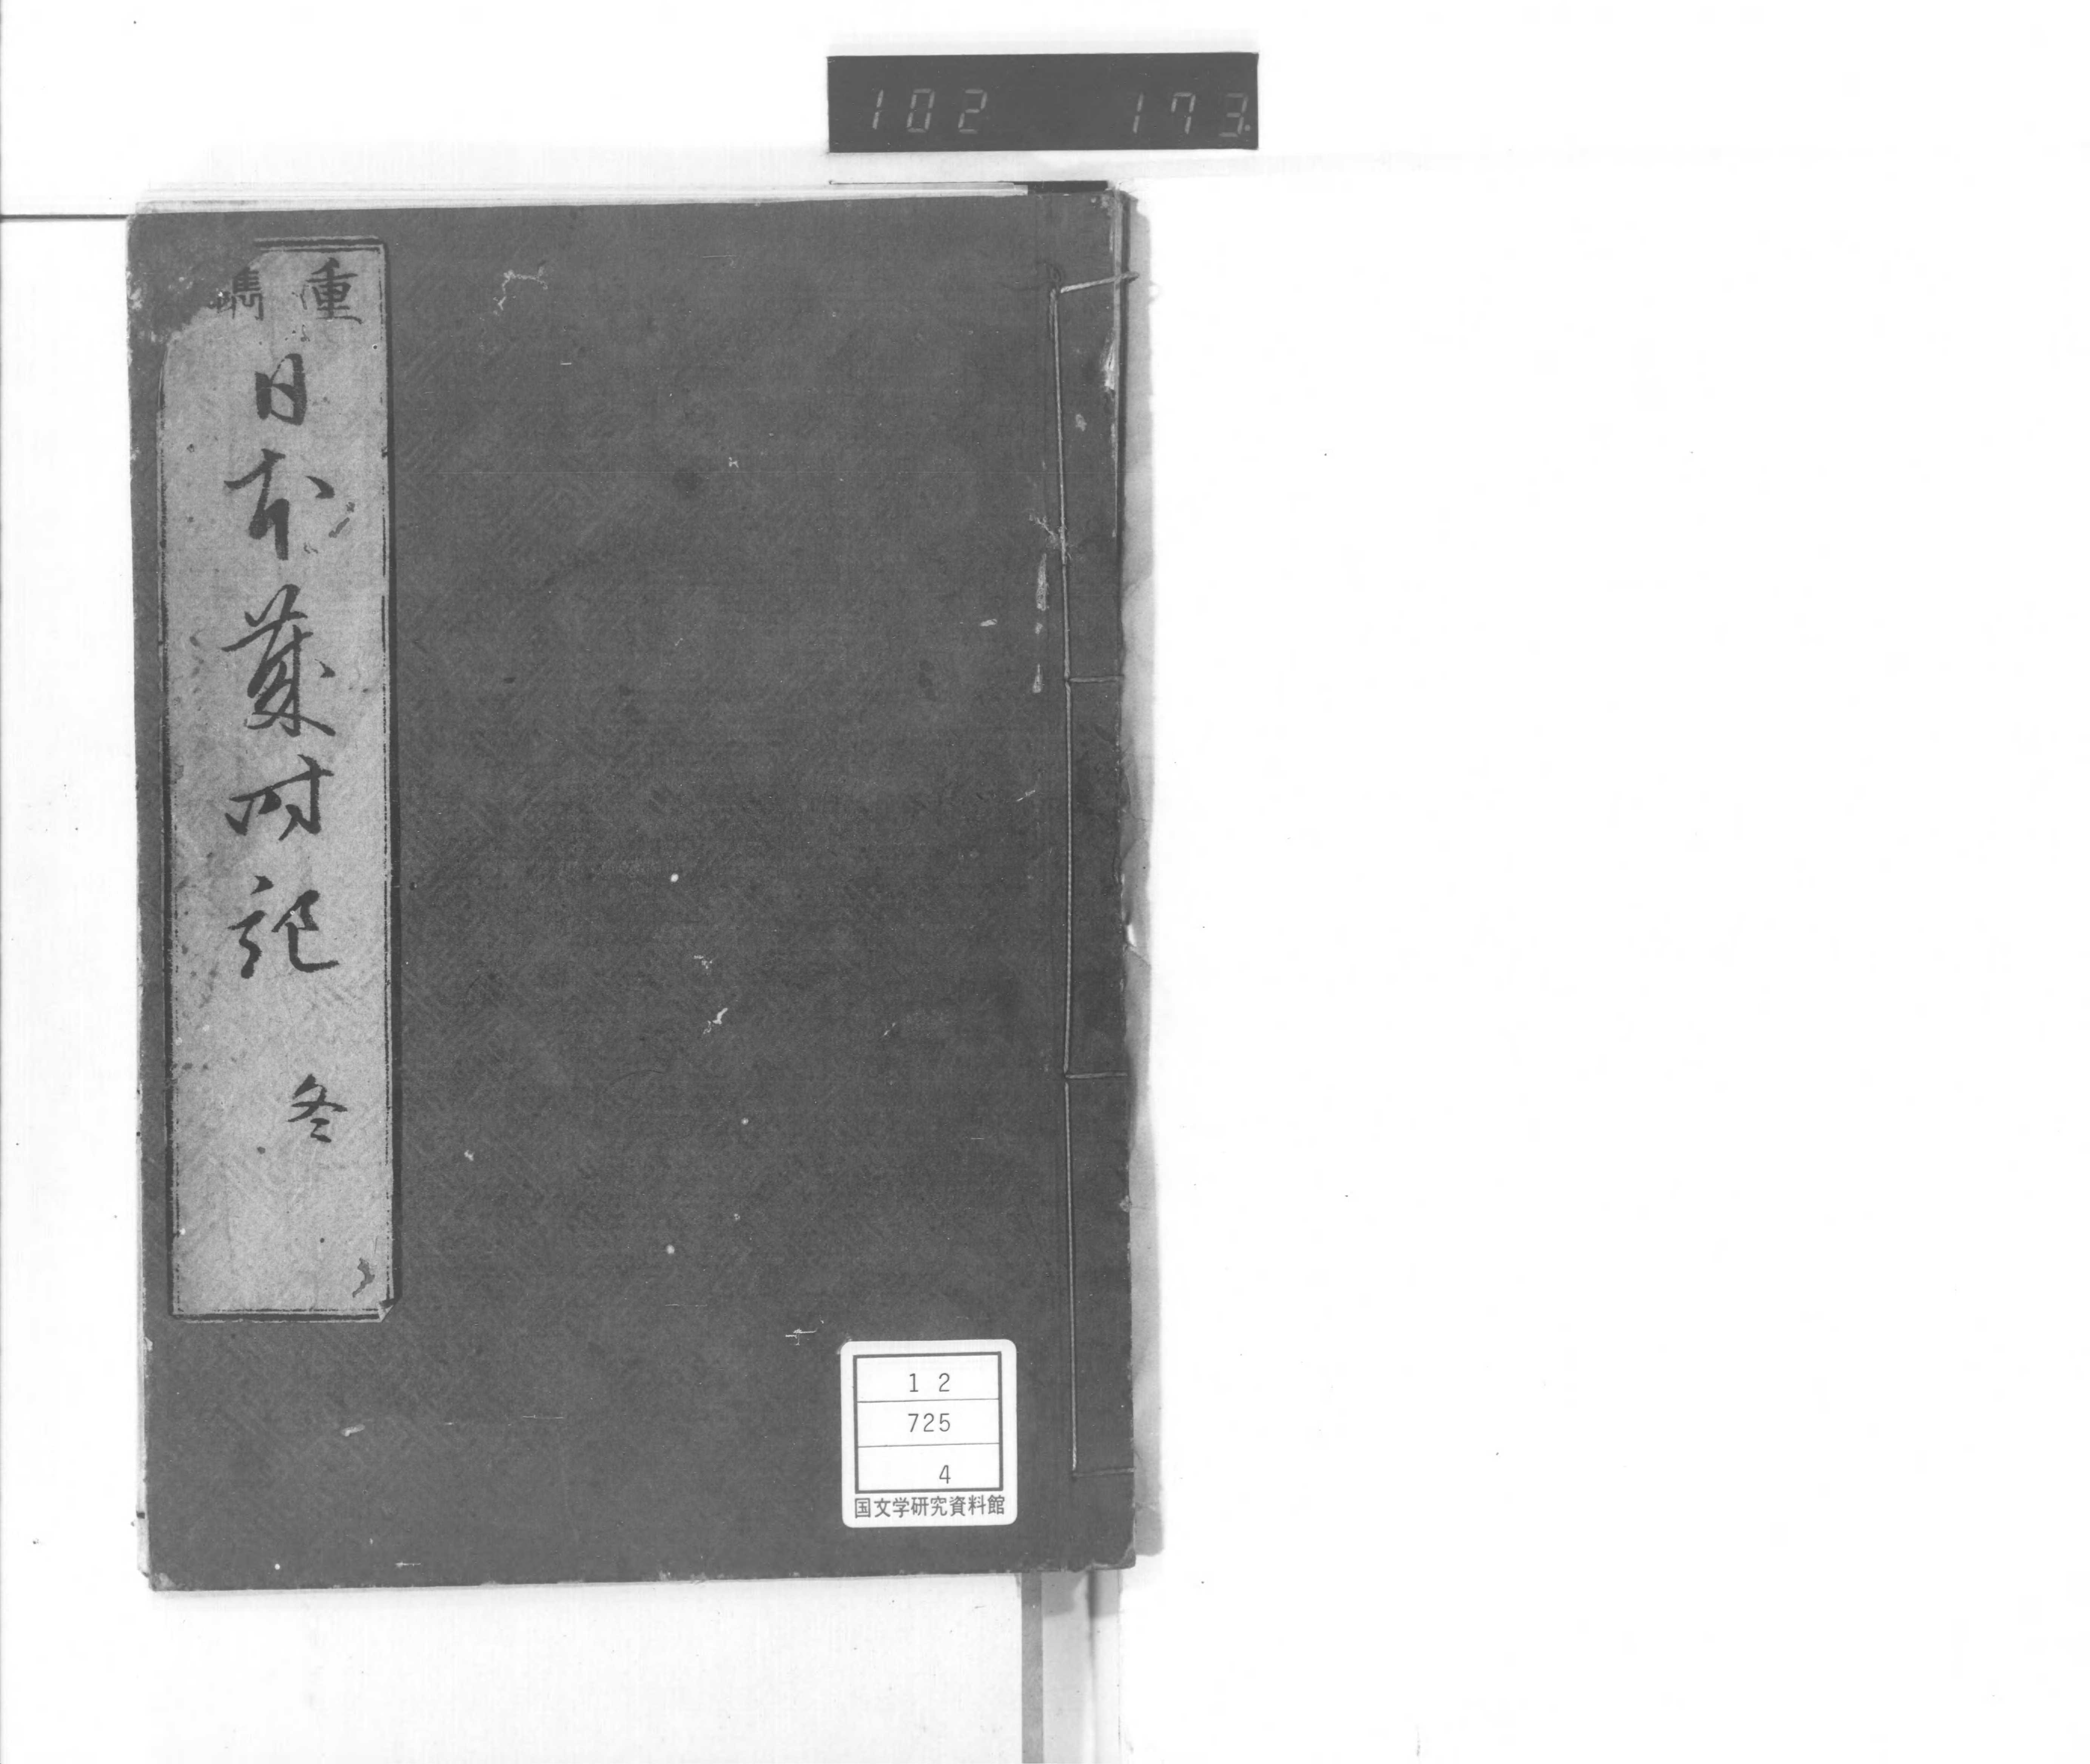 102 173
重鐫
日本歳時記 冬
12
725
4
国文学研究資料館